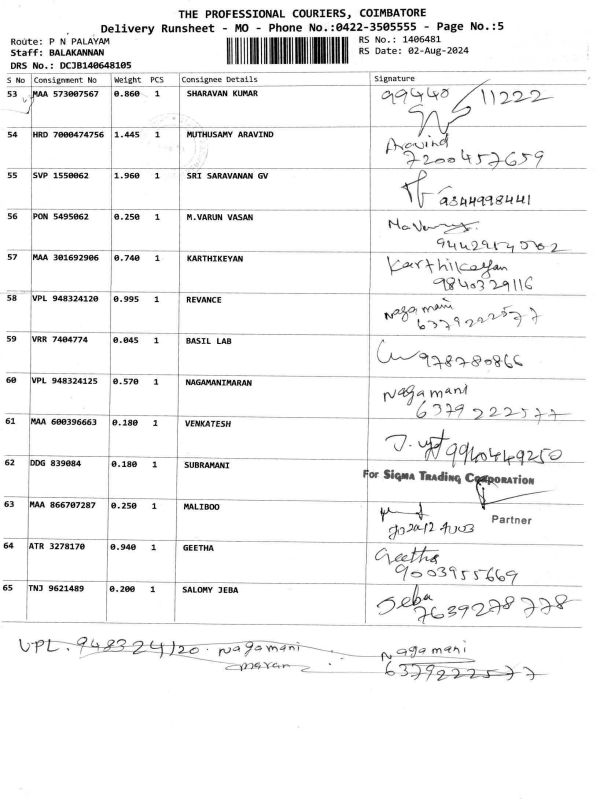 THE PROFESSIONAL COURIERS, COIMBATORE
Delivery Runsheet - MO - Phone No.:0422-3505555 - Page No.:5
Route: P N PALAYAM RS No.: 1406481
Staff: BALAKANNAN RS Date: 02-Aug-2024
DRS No.: DCJB140648105
S No Consignment No Weight PCS Consignee Details Signature
53 MAA 573007567 0.860 1 SHARAVAN KUMAR 99440 11222
54 HRD 7000474756 1.445 1 MUTHUSAMY ARAVIND Aravind
7200457659
55 SVP 1550062 1.960 1 SRI SARAVANAN GV
9344998441
56 PON 5495062 0.250 1 M.VARUN VASAN
57 MAA 301692906 0.740 1 KARTHIKEYAN Karthikeyan
9840329116
58 VPL 948324120 0.995 1 REVANCE Nagamani
6379222577
59 VRR 7404774 0.045 1 BASIL LAB
978780866
60 VPL 948324125 0.570 1 NAGAMANIMARAN Nagamani
6379222577
61 MAA 600396663 0.180 1 VENKATESH
9940449250
62 DDG 839084 0.180 1 SUBRAMANI For SIGMA TRADING CORPORATION
63 MAA 866707287 0.250 1 MALIBOO
Partner
64 ATR 3278170 0.940 1 GEETHA Geetha
9003955669
65 TNJ 9621489 0.200 1 SALOMY JEBA Jeba
7639278778
VPL. 948324120. Nagamani Nagamani
maran 6379222577